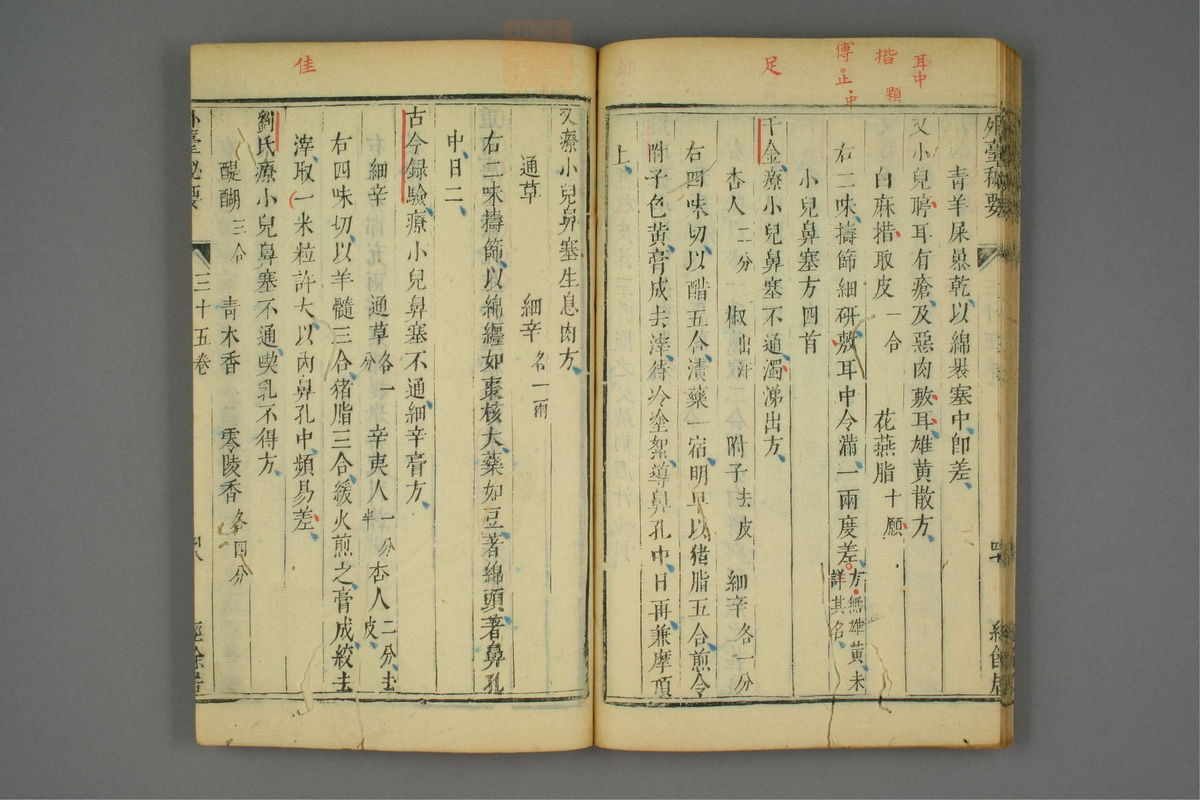 耳中
揩
顆
傅
正
中
足
外臺秘要
青羊屎暴乾以綿裹塞中卽差
又小兒聤耳有瘡及惡肉敷耳雄黃散方
白麻揩取皮一合 花燕脂十願
右二味擣篩細研敷耳中令滿一兩度差方無雄黃未詳其名
小兒鼻塞方四首
千金療小兒鼻塞不通濁涕出方
杏人二分 椒出汗 附子去皮 細辛各一分
右四味切以醋五合漬藥一宿明早以猪脂五合煎令
附子色黃膏成去滓待冷塗絮導鼻孔中日再兼摩頂
上
佳
又療小兒鼻塞生息肉方
通草 細辛各一兩
右二味擣篩以綿纏如棗核大藥如豆著綿頭著鼻孔
中日二
古今録驗療小兒鼻塞不通細辛膏方
細辛 通草各一分 辛夷人一分半 杏人二分去皮
右四味切以羊髓三合猪脂三合緩火煎之膏成絞去
滓取一米粒許大以內鼻孔中頻易差
劉氏療小兒鼻塞不通喫乳不得方
醍醐三合 靑木香 零陵香各四分
外臺秘要 三十五卷 經餘居